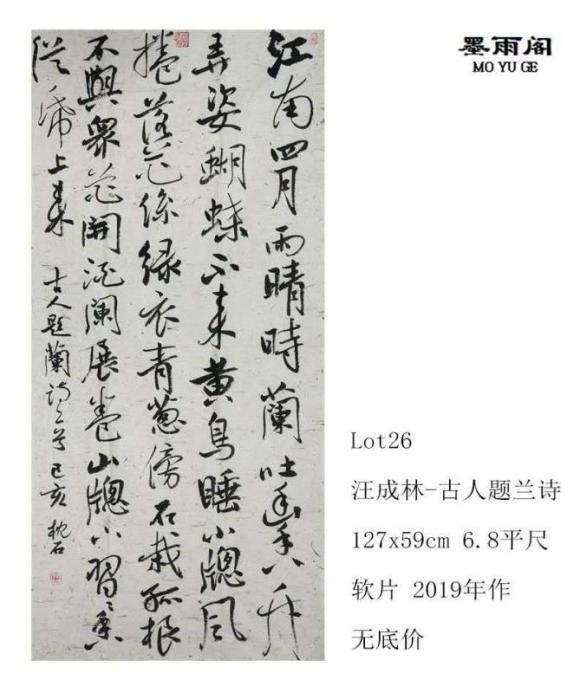 墨雨阁
MO YU GE
江南四月雨晴時蘭吐幽香竹
弄姿蝴蝶不来黄鳥睡小牕風
捲落花絲緑衣青葱傍石栽孤根
不與衆花開酒闌展卷山牕下習習香
從紙上来 古人题蘭詩二首 己亥 枕石
Lot26
汪成林-古人题兰诗
127x59cm 6.8平尺
软片 2019年作
无底价